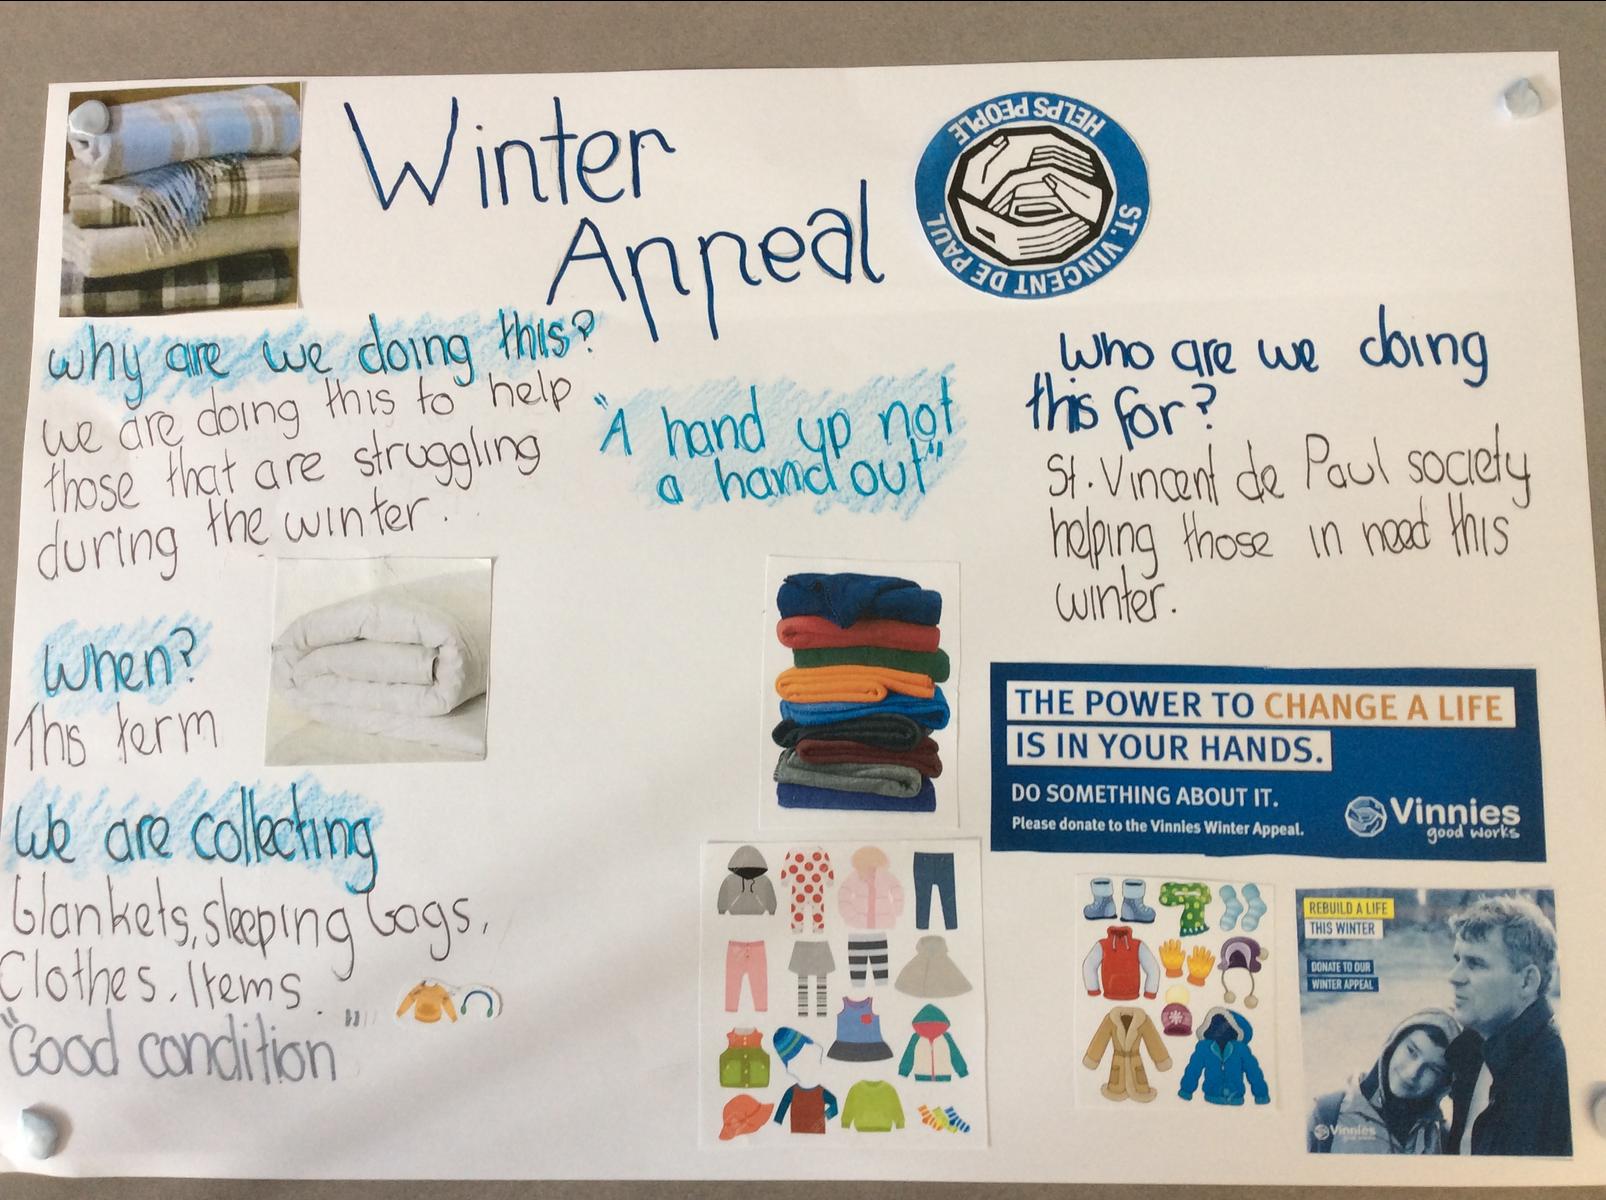 Winter
Appeal
ST. VINCENT DE PAUL
HELPS PEOPLE
Why are we doing this?
we are doing this to help
those that are struggling
during the winter.
"A hand up not
a hand out"
Who are we doing
this for?
St. Vincent de Paul society
helping those in need this
winter.
When?
This term
We are collecting
blankets, sleeping bags,
Clothes. Items.
"Good condition"
THE POWER TO CHANGE A LIFE
IS IN YOUR HANDS.
DO SOMETHING ABOUT IT.
Please donate to the Vinnies Winter Appeal.
Vinnies
good works
REBUILD A LIFE
THIS WINTER
DONATE TO OUR
WINTER APPEAL
Vinnies
good works